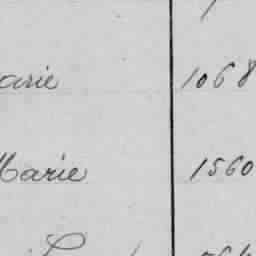 arie 1068
Marie 1560